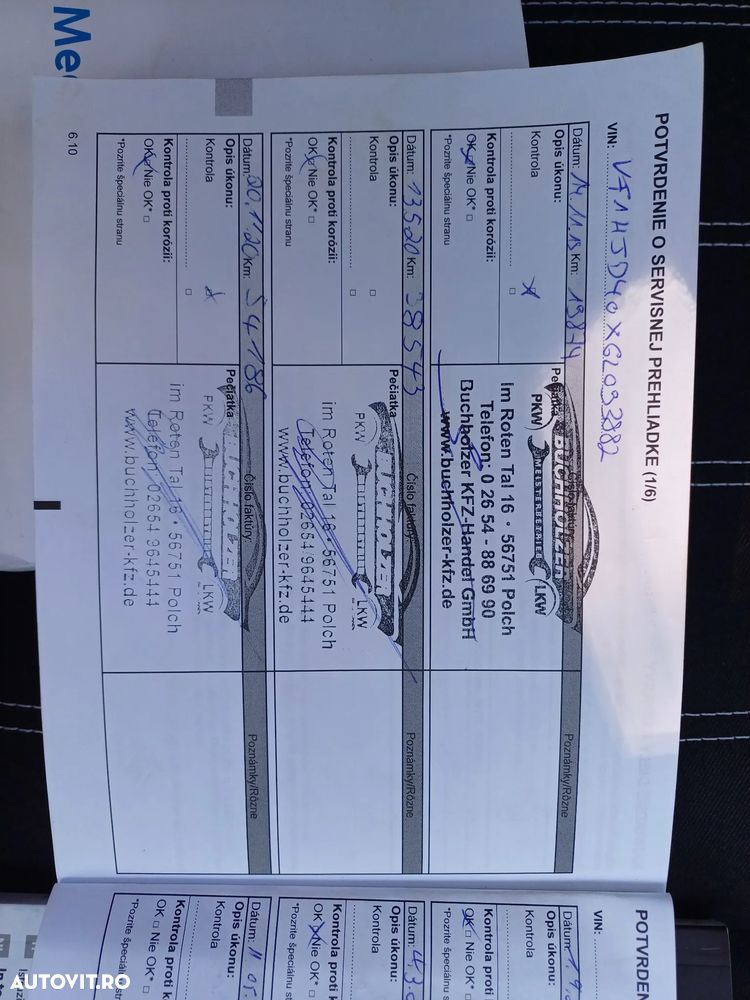 Me
POTVRDENIE O SERVISNEJ PREHLIADKE (1/6)
VIN: VF1HJD40X62093882
Dátum: 14.11.18 Km: 19874
Opis úkonu:
Kontrola
Kontrola proti korózii:
OK Nie OK*
*Pozrite špeciálnu stranu
Pečiatka
Číslo faktúry
BUCHHOLZER
MEISTERBETRIEB
PKW
LKW
Im Roten Tal 16 · 56751 Polch
Telefon: 0 26 54 - 88 69 90
Buchholzer KFZ-Handel GmbH
www.buchholzer-kfz.de
Poznámky/Rôzne
Dátum: 13520 Km: 38543
Opis úkonu:
Kontrola
Kontrola proti korózii:
OK Nie OK*
*Pozrite špeciálnu stranu
Pečiatka
Číslo faktúry
PKW
LKW
im Roten Tal 16 · 56751 Polch
Telefon: 02654 9645444
www.buchholzer-kfz.de
Poznámky/Rôzne
Dátum: 20.11.20 Km: 54186
Opis úkonu:
Kontrola
Kontrola proti korózii:
OK Nie OK*
*Pozrite špeciálnu stranu
Pečiatka
Číslo faktúry
PKW
LKW
im Roten Tal 16 · 56751 Polch
Telefon: 02654 9645444
www.buchholzer-kfz.de
Poznámky/Rôzne
6.10
POTVRDEN
VIN:
Dátum: 1.9.
Opis úkonu:
Kontrola
Kontrola proti k
OK Nie OK*
*Pozrite špeciálnu s
Dátum: 4.3.
Opis úkonu:
Kontrola
Kontrola proti k
OK Nie OK*
*Pozrite špeciálnu s
Dátum: 11 05.
Opis úkonu:
Kontrola
Kontrola proti k
OK Nie OK*
*Pozrite špeciál
AUTOVIT.RO